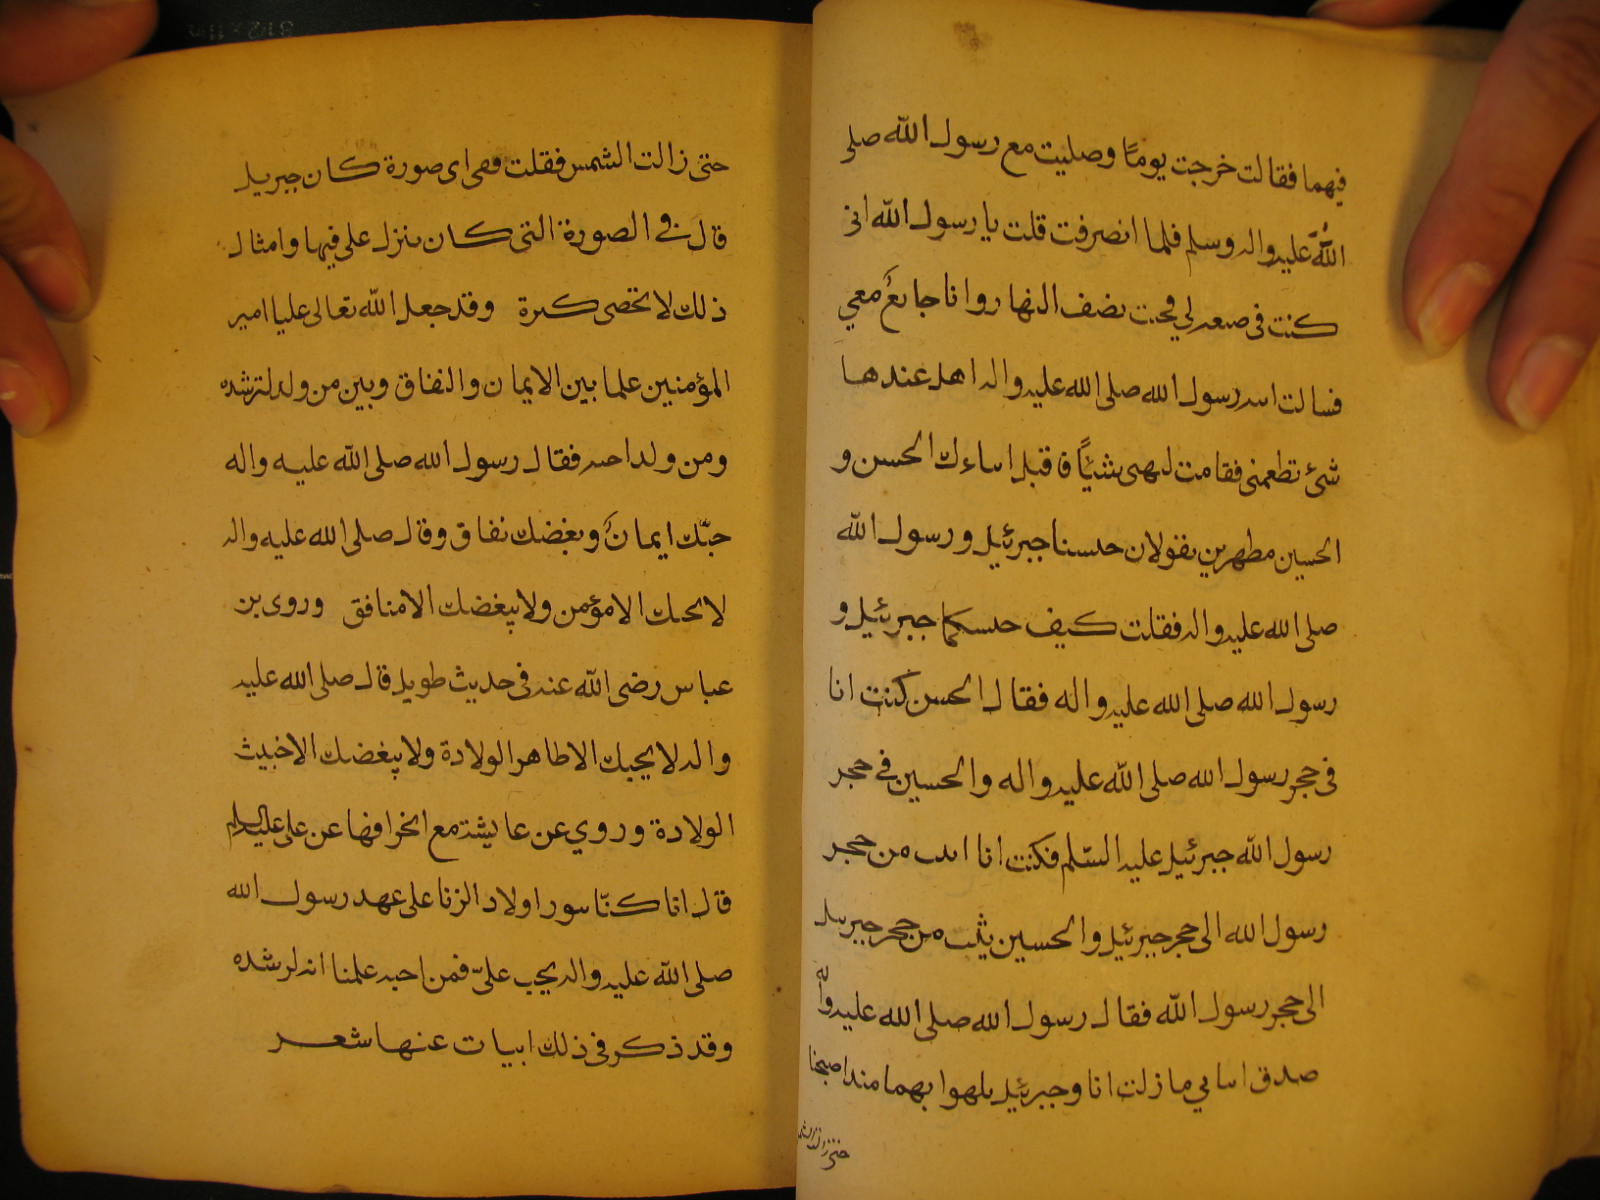 فيهما فقالت خرجت يومًا وصليت مع رسول الله صلى
الله عليه واله وسلم فلما انصرفت قلت يا رسول الله انى
كنت فى لي فجئت نصف النهار وانا جائع معي
فسالت رسول الله صلى الله عليه واله هل عندها
شئ تطعمنى فقامت لتهيئ شيئًا فاقبل ابناءك الحسن و
الحسين مطهرين يقولان حبسنا جبرئيل ورسول الله
صلى الله عليه واله فقلت كيف حبسكما جبرئيل و
رسول الله صلى الله عليه واله فقال الحسن كنت انا
فى حجر رسول الله صلى الله عليه واله والحسين فى حجر
رسول الله جبرئيل عليه السلم فكنت انا اثب من حجر
رسول الله الى حجر جبرئيل والحسين يثب من حجر جبرئيل
الى حجر رسول الله فقال رسول الله صلى الله عليه واله
صدق ابنايي ما زلت انا وجبرئيل نلهوا بهما منذ اصبحنا
حتى زالت الشمس
حتى زالت الشمس فقلت ففى اى صورة كان جبريل
قال فى الصورة التى كان ينزل على فيها وامثال
ذلك لا تحصى كثرة وقد جعل الله تعالى عليا امير
المؤمنين علما بين الايمان والنفاق وبين من ولد لرشده
ومن ولد فقال رسول الله صلى الله عليه واله
حبّك ايمان وبغضك نفاق وقال صلى الله عليه واله
لا يحبك الا مؤمن ولا يبغضك الا منافق وروى بن
عباس رضى الله عنه فى حديث طويل قال صلى الله عليه
واله لا يحبك الا طاهر الولادة ولا يبغضك الا خبيث
الولادة وروي عن عايشة مع انحرافها عن على عليه السلام
قال انا كنّا نبور اولاد الزنا على عهد رسول الله
صلى الله عليه واله بحب علىّ فمن احبه علمنا انه لرشده
وقد ذكر فى ذلك ابيات عنها شعر